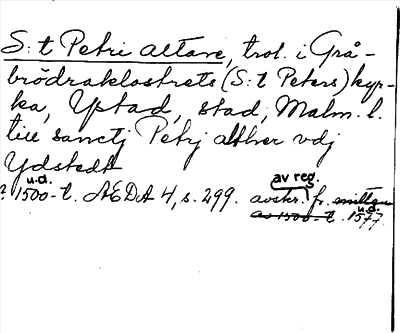 S:t Petri altare, trol. i Grå-
brödraklostrets (S:t Peters) kyr-
ka, Ystad, stad, Malm. l.
till sanctj Petrj alther vdj
Ydstedt
u.d. av reg.
? 1500-t. ÆDA 4, s. 299. avskr. fr. mitten u.d.
av 1500-t. 1577.